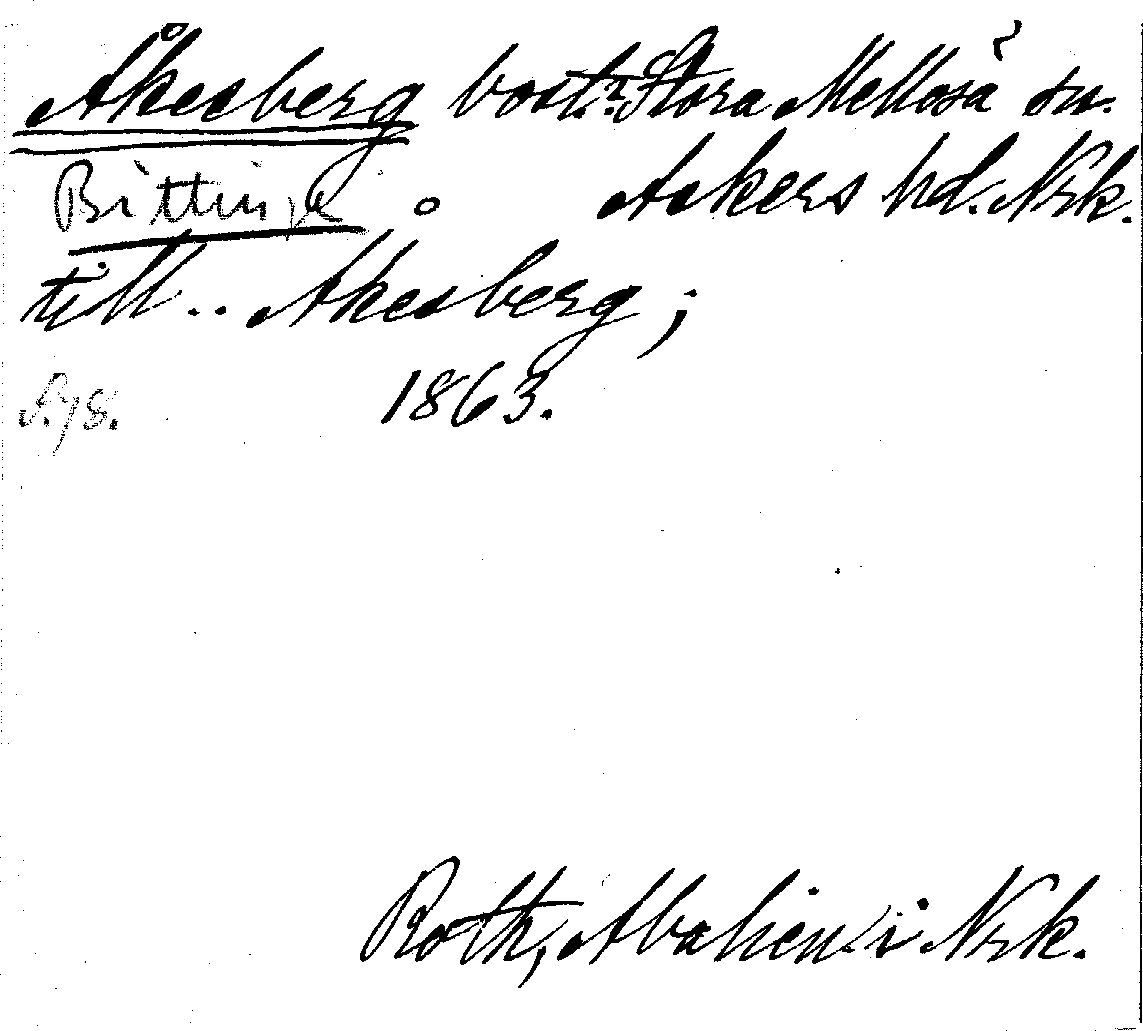 Åkesberg bost. Stora Mellösa sn.
Bittinge o Askers hd. Nrk.
till.. Åkesberg;
S. 78. 1863.
Roth, Abahen i Nrk.